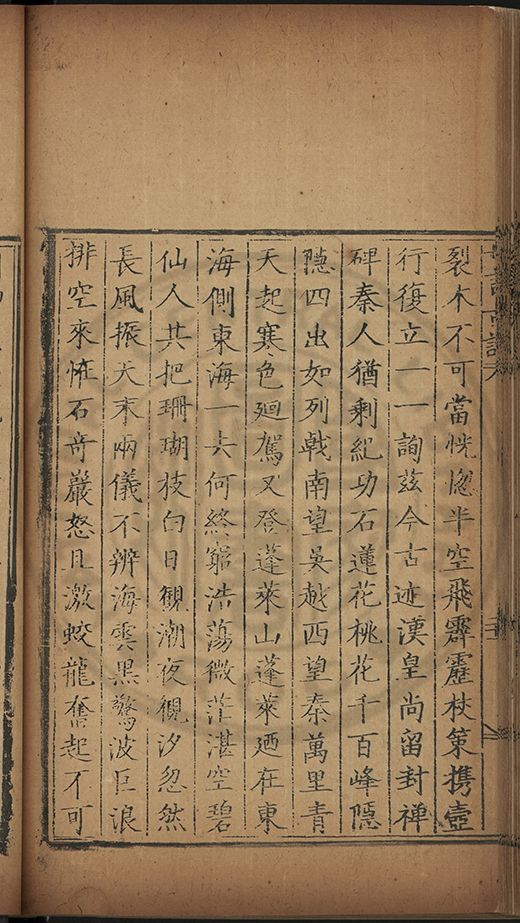 裂木不可當恍惚半空飛霹靂杖策携壺
行復立一一詢兹今古迹漢皇尚留封禅
碑秦人猶剩紀功石蓮花桃花千百峰隠
隠四出如列戟南望吳越西望秦萬里青
天起寒色廻駕又登蓬萊山蓬萊廼在東
海側東海一去何終窮浩蕩微茫湛空碧
仙人共把珊瑚枝白日觀潮夜觀汐忽然
長風振天末兩儀不辨海雲黒驚波巨浪
排空來怪石奇巖怒且激蛟龍奮起不可